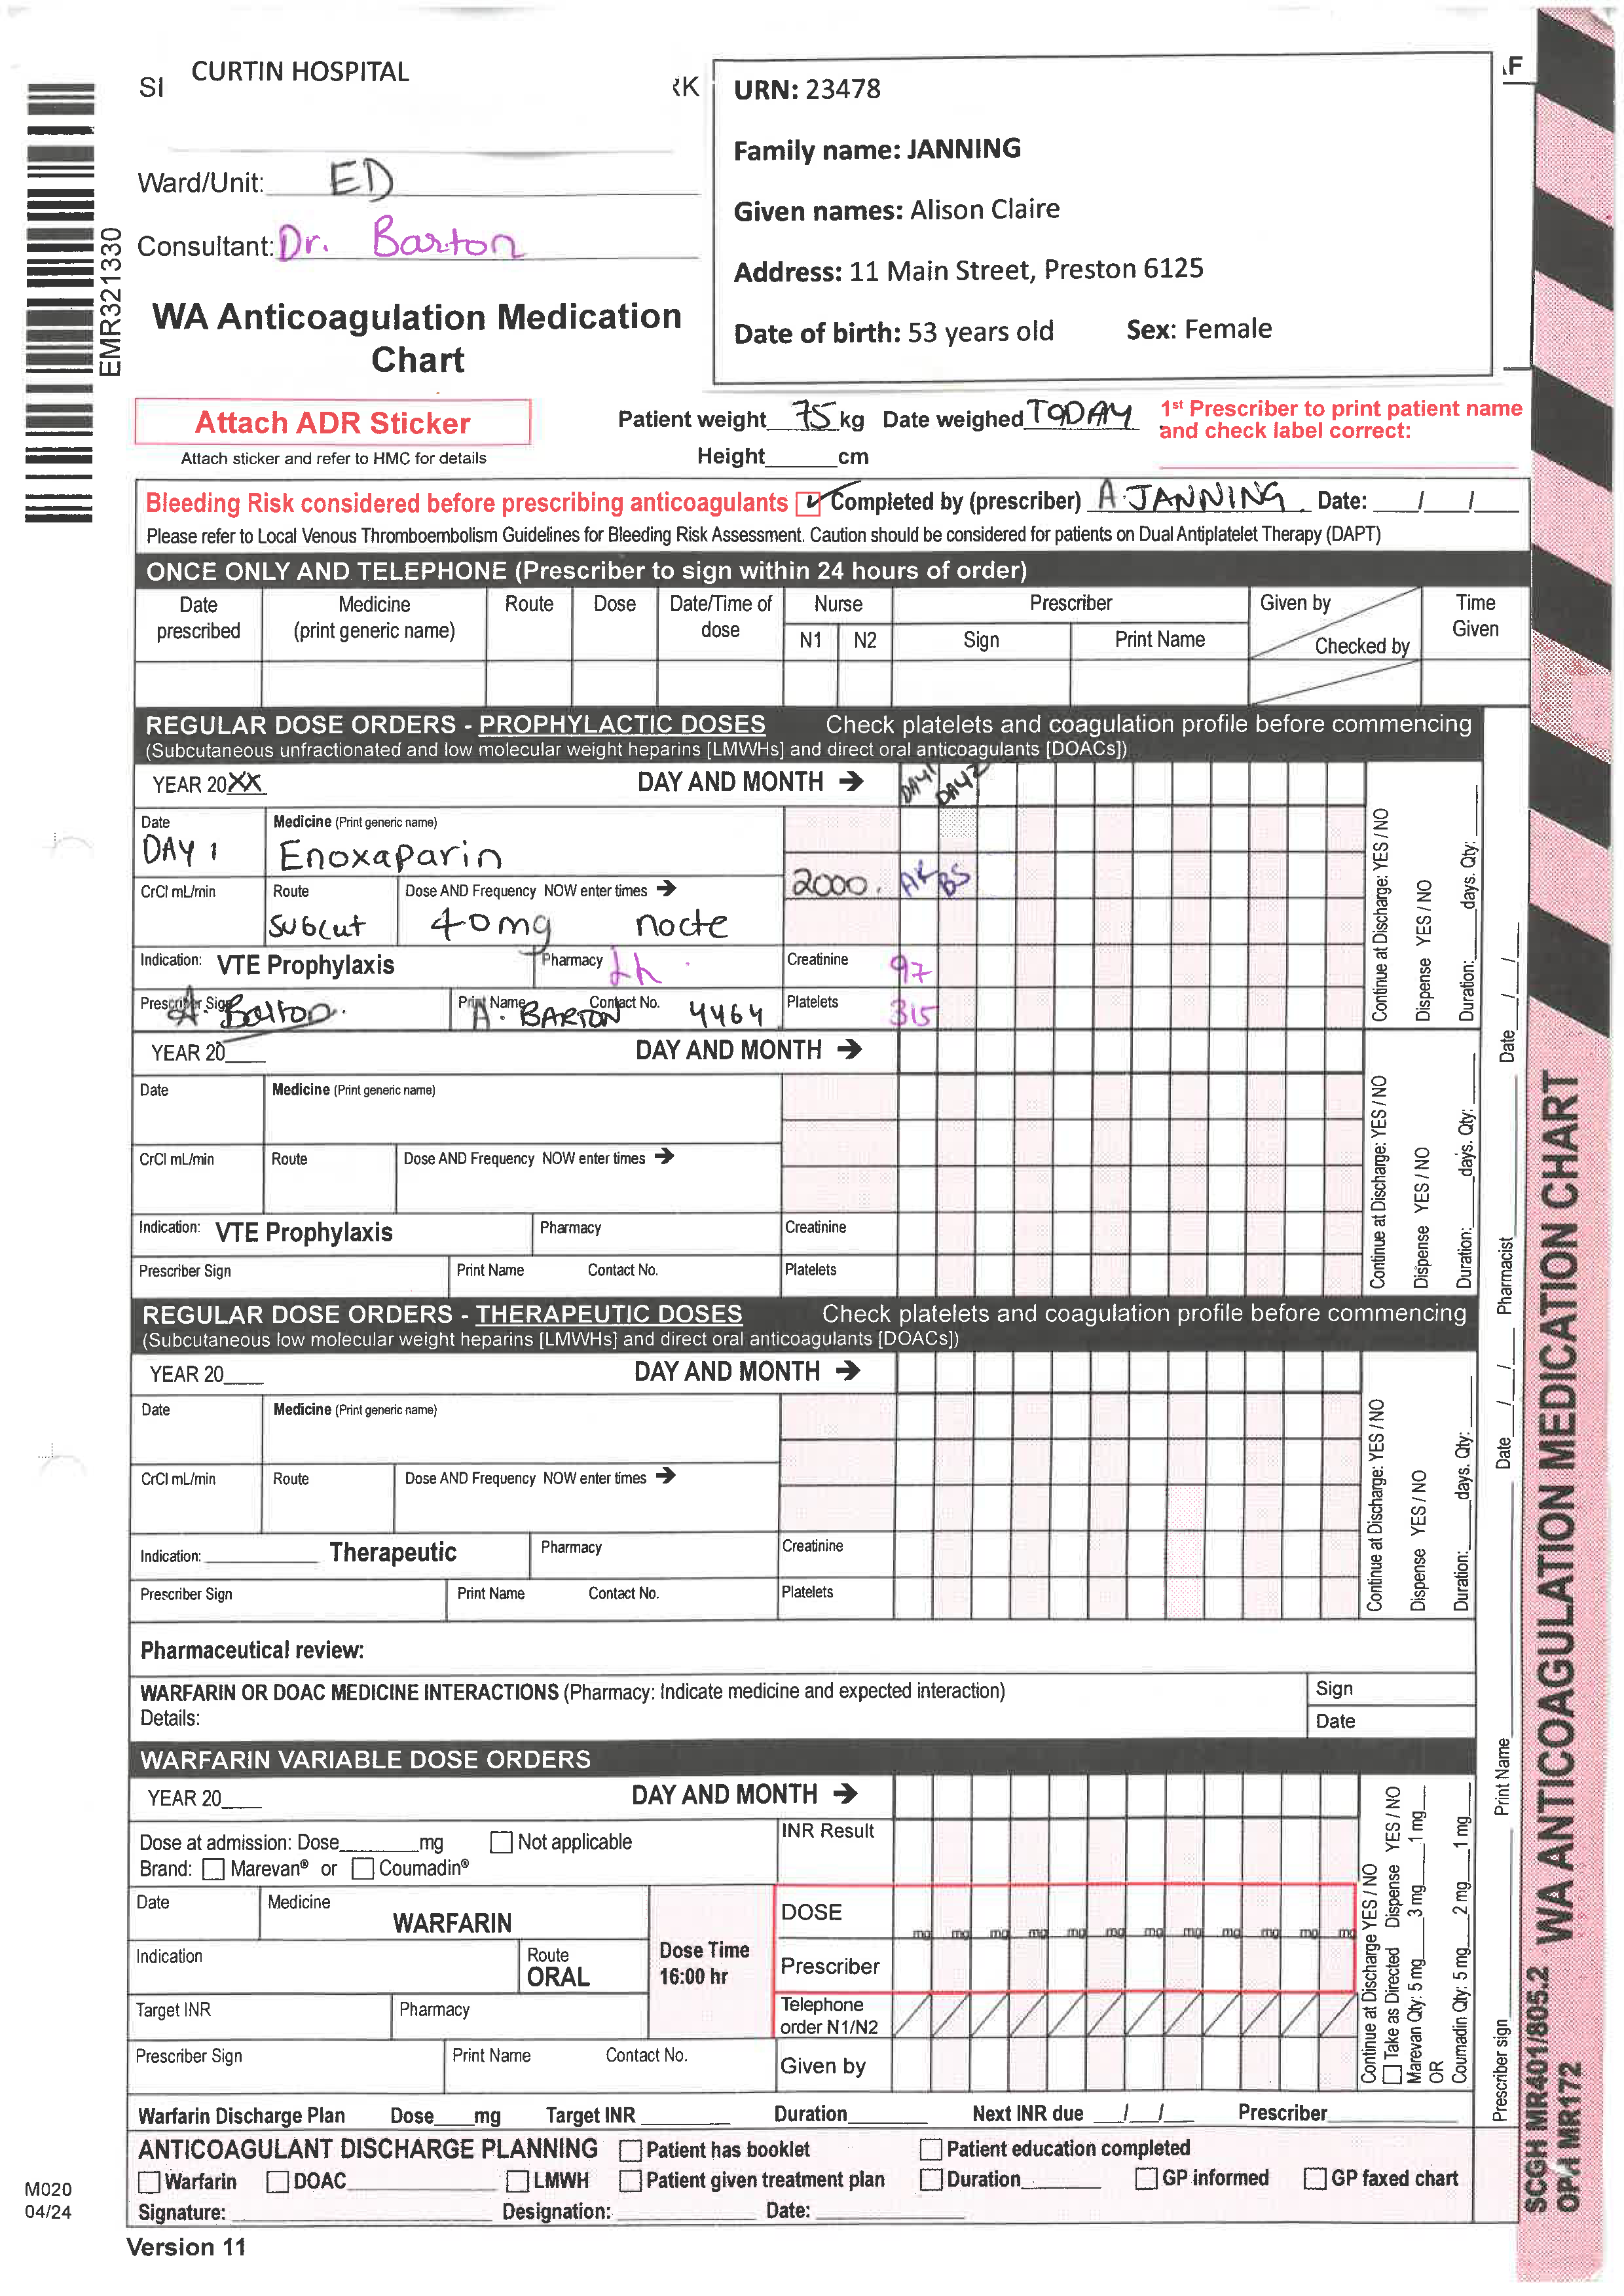 SI CURTIN HOSPITAL RK
AF
URN: 23478
Family name: JANNING
Given names: Alison Claire
Address: 11 Main Street, Preston 6125
Date of birth: 53 years old Sex: Female
Ward/Unit: ED
Consultant: Dr. Barton
WA Anticoagulation Medication
Chart
EMR321330
Attach ADR Sticker
Attach sticker and refer to HMC for details
Patient weight 75 kg Date weighed TODAY
Height cm
1st Prescriber to print patient name
and check label correct:
Bleeding Risk considered before prescribing anticoagulants ✓ Completed by (prescriber) A JANNING Date: / /
Please refer to Local Venous Thromboembolism Guidelines for Bleeding Risk Assessment. Caution should be considered for patients on Dual Antiplatelet Therapy (DAPT)
ONCE ONLY AND TELEPHONE (Prescriber to sign within 24 hours of order)
Date prescribed
Medicine (print generic name)
Route
Dose
Date/Time of dose
Nurse N1 N2
Prescriber Sign Print Name
Given by Checked by
Time Given
REGULAR DOSE ORDERS - PROPHYLACTIC DOSES Check platelets and coagulation profile before commencing
(Subcutaneous unfractionated and low molecular weight heparins [LMWHs] and direct oral anticoagulants [DOACs])
YEAR 20XX DAY AND MONTH → DAY1 DAY2
Date Medicine (Print generic name)
DAY 1 Enoxaparin
CrCl mL/min Route Dose AND Frequency NOW enter times → 2000. AK BS
subcut 40mg nocte
Indication: VTE Prophylaxis Pharmacy Lh Creatinine 97
Prescriber Sign A. Barton. Print Name A. BARTON Contact No. 4464 Platelets 315
Continue at Discharge: YES / NO
Dispense YES / NO
Duration: days. Qty:
YEAR 20 DAY AND MONTH →
Date Medicine (Print generic name)
CrCl mL/min Route Dose AND Frequency NOW enter times →
Indication: VTE Prophylaxis Pharmacy Creatinine
Prescriber Sign Print Name Contact No. Platelets
Continue at Discharge: YES / NO
Dispense YES / NO
Duration: days. Qty:
REGULAR DOSE ORDERS - THERAPEUTIC DOSES Check platelets and coagulation profile before commencing
(Subcutaneous low molecular weight heparins [LMWHs] and direct oral anticoagulants [DOACs])
YEAR 20 DAY AND MONTH →
Date Medicine (Print generic name)
CrCl mL/min Route Dose AND Frequency NOW enter times →
Indication: Therapeutic Pharmacy Creatinine
Prescriber Sign Print Name Contact No. Platelets
Continue at Discharge: YES / NO
Dispense YES / NO
Duration: days. Qty:
Pharmaceutical review:
WARFARIN OR DOAC MEDICINE INTERACTIONS (Pharmacy: Indicate medicine and expected interaction) Sign
Details: Date
WARFARIN VARIABLE DOSE ORDERS
YEAR 20 DAY AND MONTH →
Dose at admission: Dose mg Not applicable INR Result
Brand: Marevan® or Coumadin®
Date Medicine WARFARIN DOSE mg mg mg mg mg mg mg mg mg mg mg mg
Indication Route ORAL Dose Time 16:00 hr Prescriber
Target INR Pharmacy Telephone order N1/N2
Prescriber Sign Print Name Contact No. Given by
Continue at Discharge YES / NO
Take as Directed Dispense YES / NO
Marevan Qty: 5 mg 3 mg 1 mg
OR
Coumadin Qty: 5 mg 2 mg 1 mg
Warfarin Discharge Plan Dose mg Target INR Duration Next INR due / / Prescriber
ANTICOAGULANT DISCHARGE PLANNING Patient has booklet Patient education completed
Warfarin DOAC LMWH Patient given treatment plan Duration GP informed GP faxed chart
Signature: Designation: Date:
Prescriber sign Print Name Date / / Pharmacist Date / /
SCGH MR401/805.2 WA ANTICOAGULATION MEDICATION CHART
OPH MR172
M020
04/24
Version 11